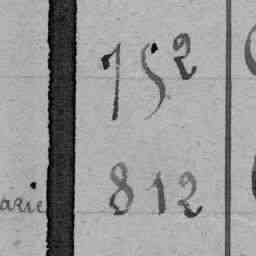 752
arie 812